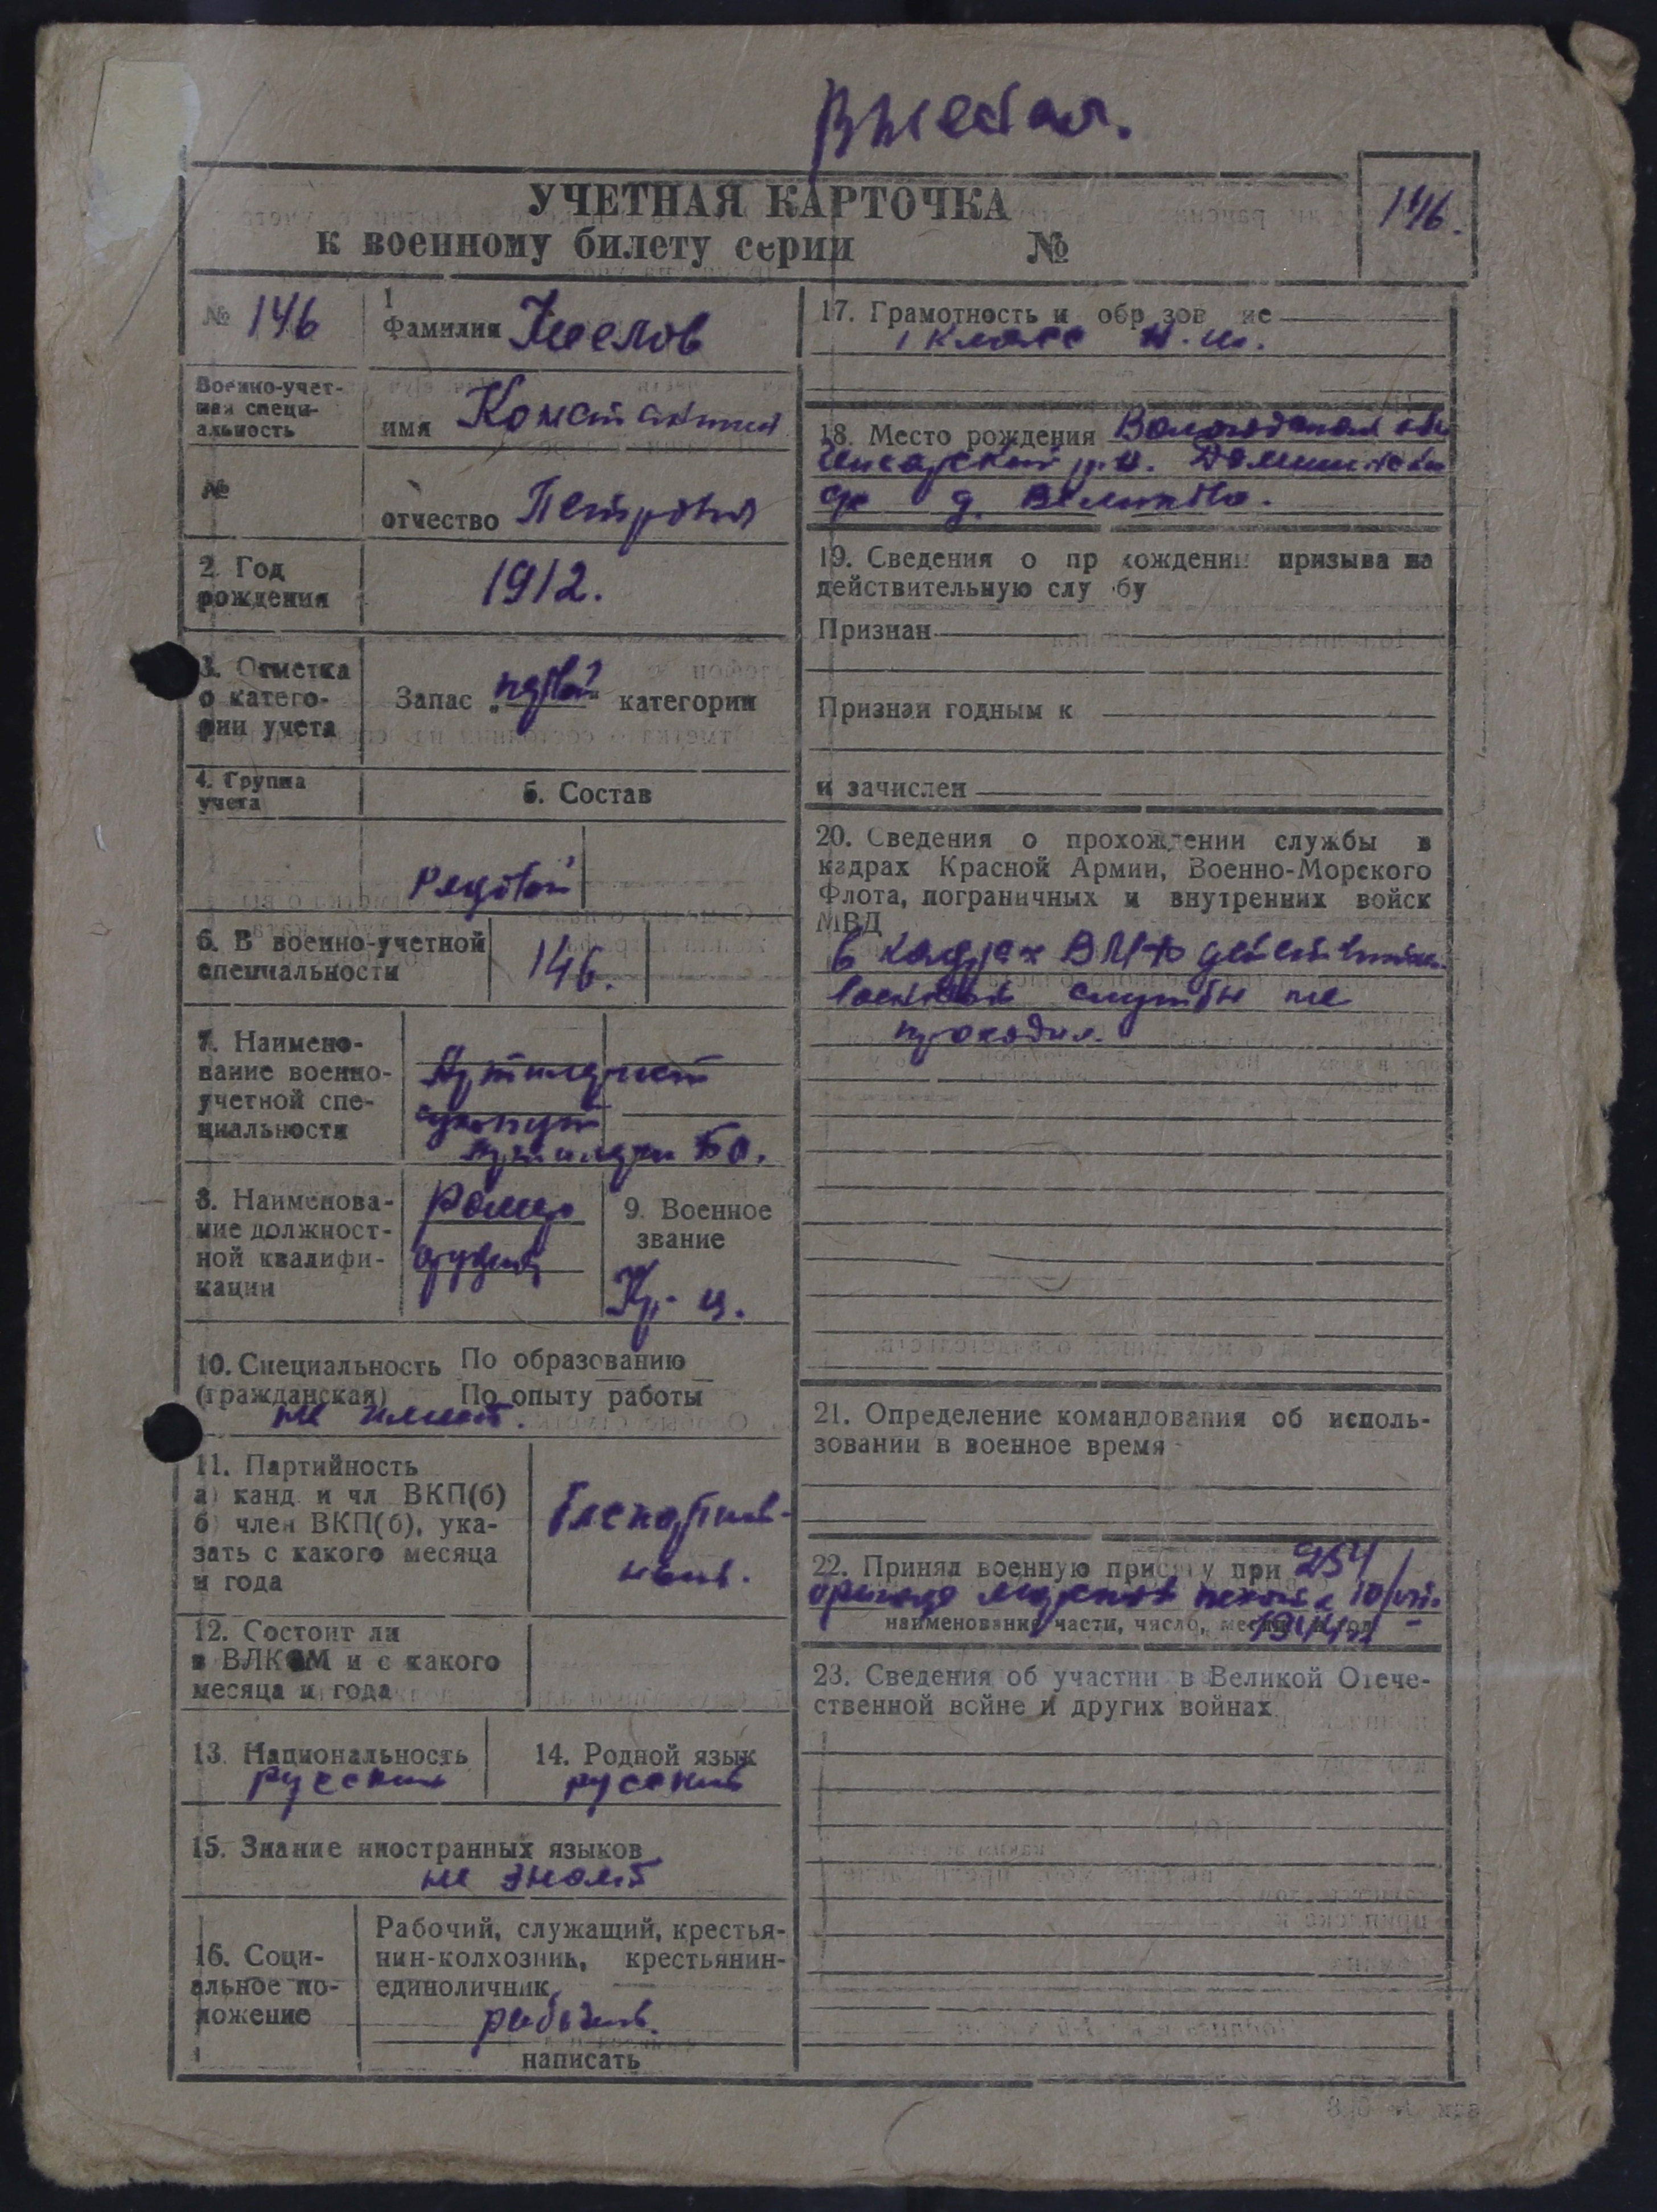 Выбыл.
УЧЕТНАЯ КАРТОЧКА
к военному билету серии №
146.
№ 146
1
Фамилия
Военно-учет-
ная специ-
альность
имя Константин
№
отчество Петрович
2. Год
рождения
1912.
3. Отметка
о катего-
рии учета
Запас „первой“ категории
4. Группа
учета
5. Состав
Рядовой
6. В военно-учетной
специальности
146.
7. Наимено-
вание военно-
учетной спе-
циальности
Артилерист
БО.
8. Наименова-
ние должност-
ной квалифи-
кации
орудия
9. Военное
звание
Кр-ц.
10. Специальность По образованию
(гражданская) По опыту работы
не имеет.
11. Партийность
а) канд. и чл ВКП(б)
б) член ВКП(б), ука-
зать с какого месяца
и года
Беспартий-
ный.
12. Состоит ли
в ВЛКСМ и с какого
месяца и года
13. Национальность
русский
14. Родной язык
русский
15. Знание иностранных языков
не знает
16. Соци-
альное по-
ложение
Рабочий, служащий, крестья-
нин-колхозник, крестьянин-
единоличник
рабочий.
написать
17. Грамотность и обр зов ие
1 класс н.ш.
18. Место рождения Вологодская обл
р-н.
д.
19. Сведения о пр хождении призыва на
действительную слу бу
Признан
Признан годным к
и зачислен
20. Сведения о прохождении службы в
кадрах Красной Армии, Военно-Морского
Флота, пограничных и внутренних войск
МВД
В кадрах ВМФ действительн.
военной службы не
проходил.
21. Определение командования об исполь-
зовании в военное время
22. Принял военную прис у при 254
бригаде морской пехоты 10/VII-
наименование части, число, мес
1944
23. Сведения об участии в Великой Отече-
ственной войне и других войнах